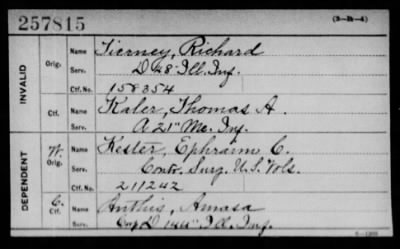 257815
(3-14-4)
INVALID
Orig.
Name Tierney, Richard
Serv. D 48" Ill. Inf.
Ctf. No. 158354
Ctf.
Name Kaler, Thomas A.
Serv. A 21" Me. Inf.
DEPENDENT
W. Orig.
Name Kester, Ephraim C.
Serv. Contr. Surg. U.S. Vols.
Ctf. No. 211242
C. Ctf.
Name Anthis, Amasa
Serv. D 144" Ill. Inf.